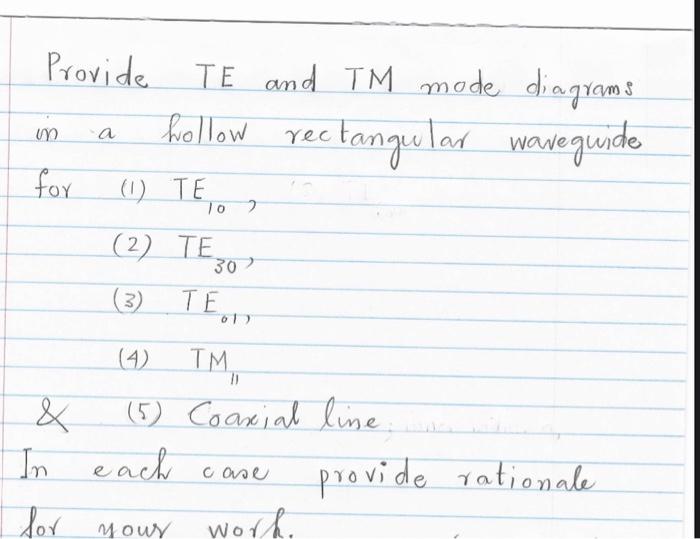 Provide TE and TM mode diagrams
in a hollow rectangular waveguide
for (1) TE10,
(2) TE30,
(3) TE01,
(4) TM11
& (5) Coaxial line
In each case provide rationale
for your work.